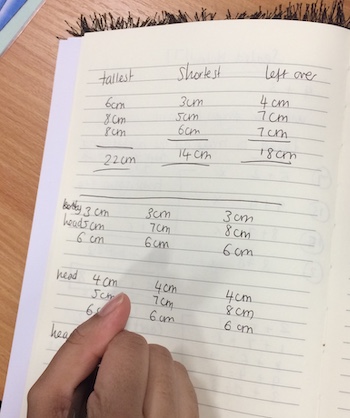 tallest Shortest Left over
6cm 3cm 4cm
8cm 5cm 7cm
8cm 6cm 7cm
22cm 14cm 18cm
3cm 3cm 3cm
head 5cm 7cm 8cm
6cm 6cm 6cm
head 4cm 4cm 4cm
5cm 7cm 8cm
6cm 6cm